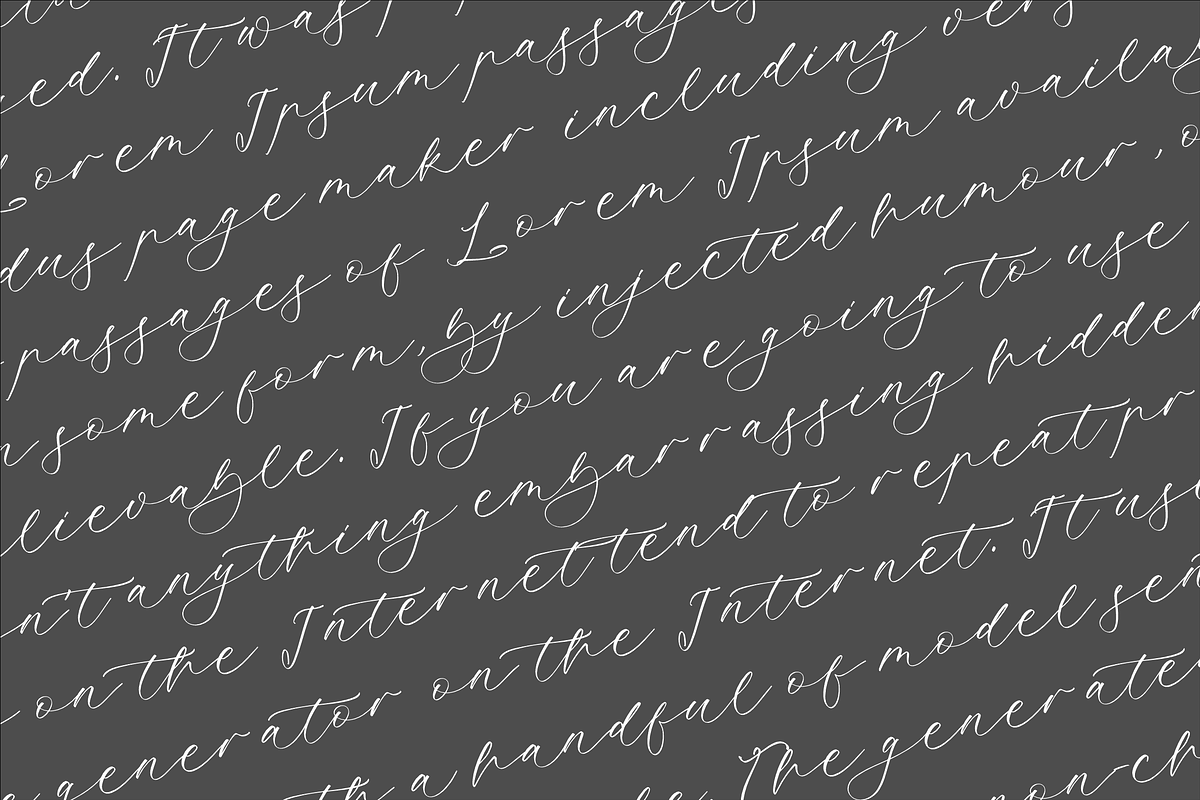 ed. It was
Lorem Ipsum passages
dus page maker including vers
passages of Lorem Ipsum availa
n some form, by injected humour, o
lievable. If you are going to use
n't anything embarrassing hidden
on the Internet tend to repeat pr
generator on the Internet. It use
th a handful of model sen
The generate
non-ch